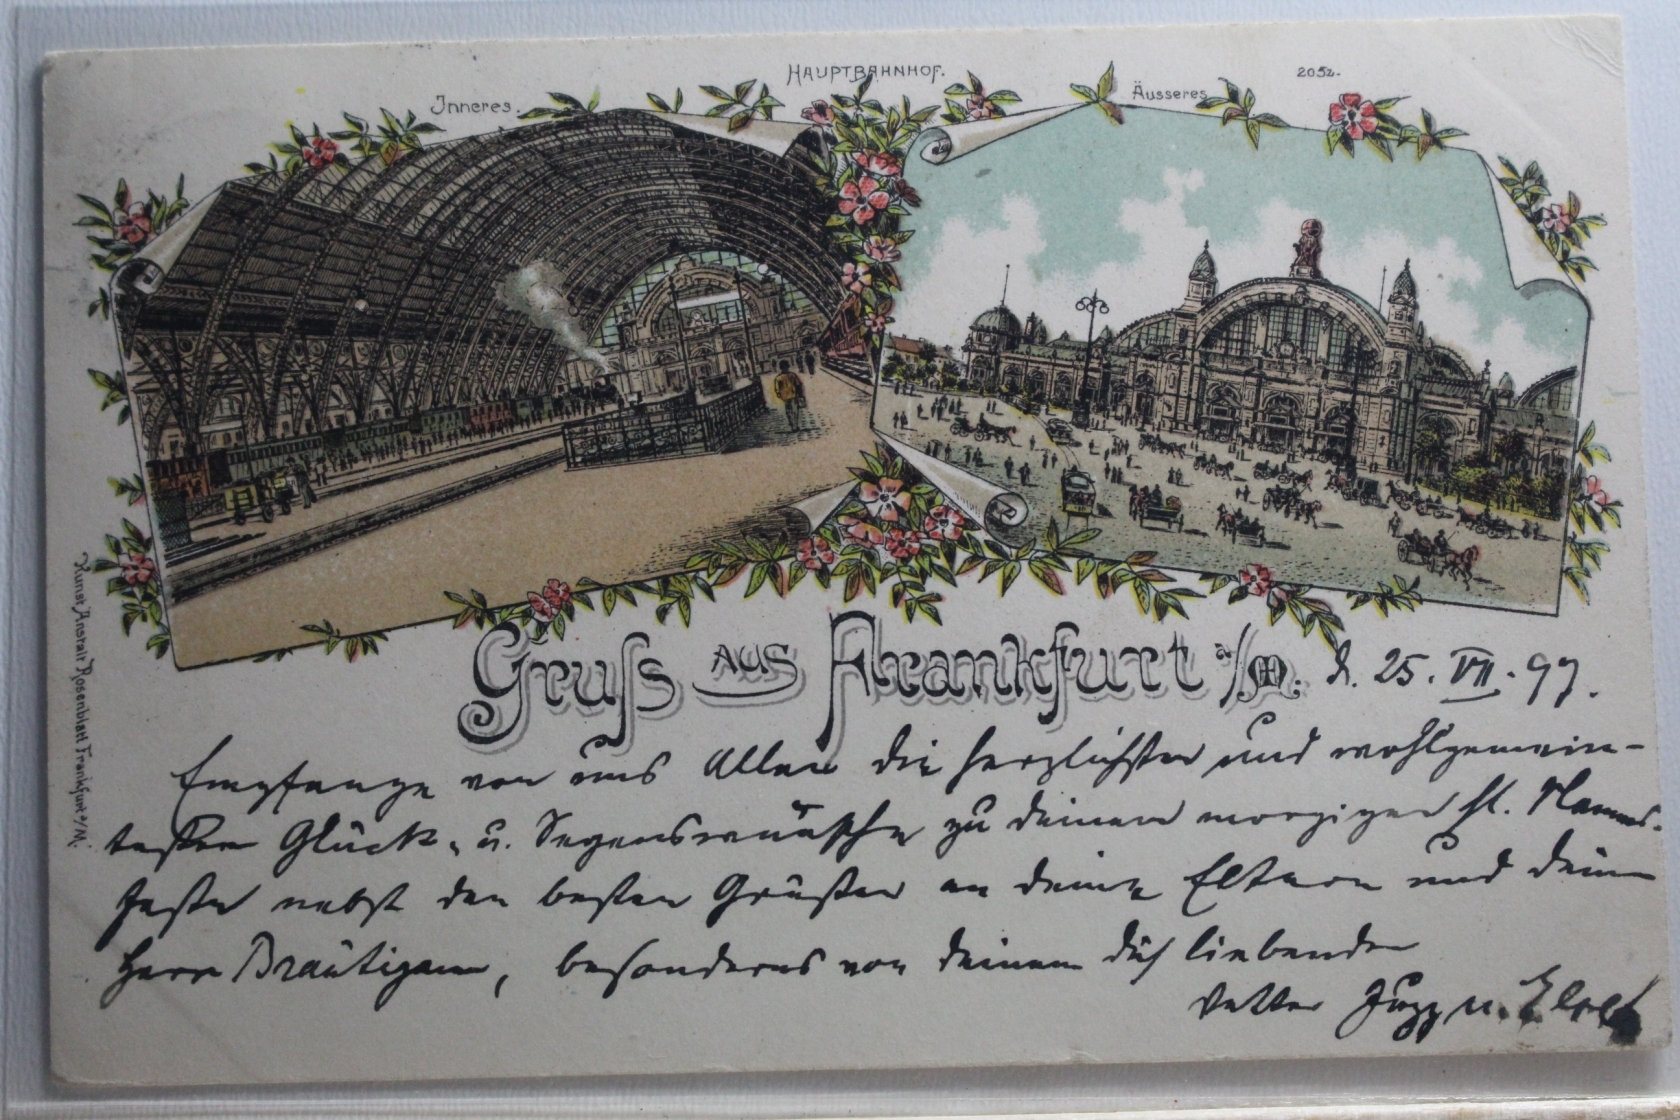 HAUPTBAHNHOF.
2052.
Inneres.
Äusseres
Gruß aus Frankfurt a/M. d. 25. VII. 97.
Empfange von uns Allen die herzlichsten und wohlgemein-
testen Glück- u. Segenswünsche zu deinem morgigen hl. Namens-
feste nebst den besten Grüßen an deine Eltern und dein
Herr Bräutigam, besonders von deinem dich liebenden
Vetter Jupp u.
Kunst Anstalt Rosenblatt Frankfurt a/M.